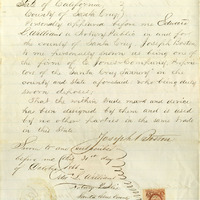 State of California, }
County of Santa Cruz }
Personally appeared before me Edward
L. Williams a Notary Public in and for
the county of Santa Cruz, Joseph Boston
to me personally known as being one of the
firm of & Jones & Company, Proprie-
tors of the Santa Cruz Tannery in the
county and state aforesaid who being duly
sworn deposes
That the within trade mark and device
has been designed by them and is used
by no other parties in the same trade
in this State
Joseph Boston
Sworn to and Subscribed
before me this day
of
Ed. L. Williams
Notary Public
Santa Cruz County